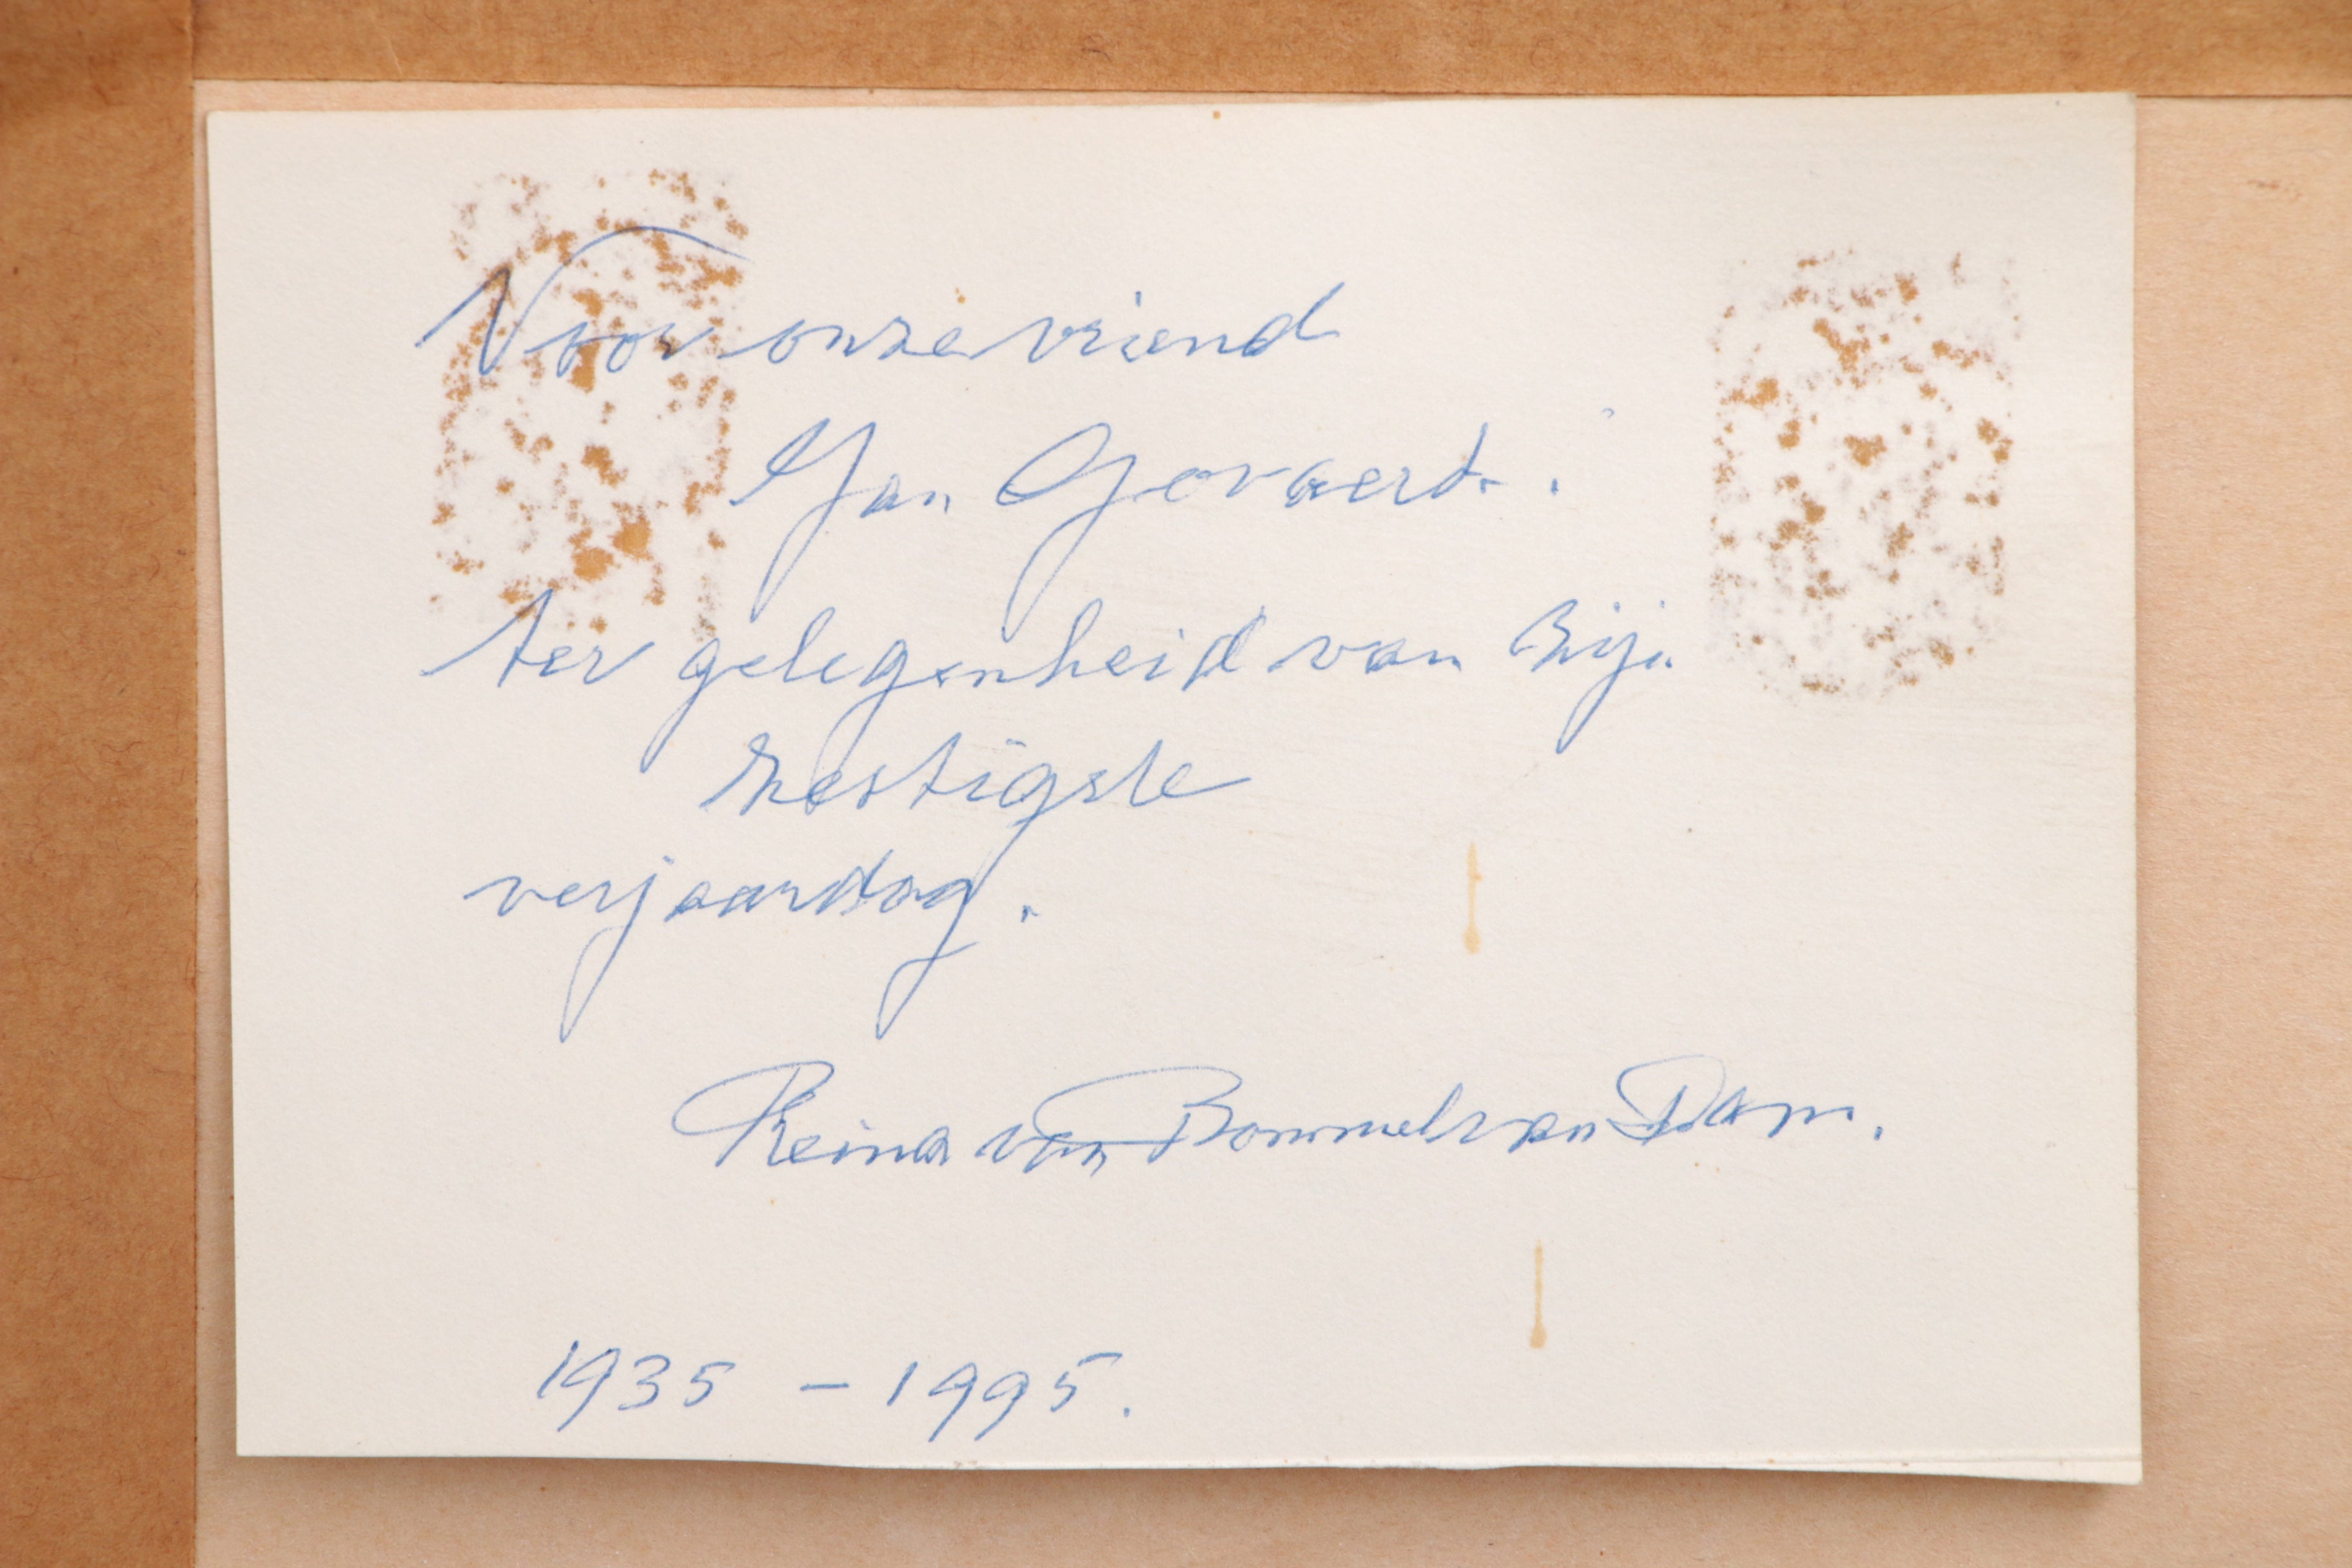 Voor onze vriend
Jan Govaert.
ter gelegenheid van zijn
zestigste
verjaardag.
Reina van Bommel van Dam.
1935 - 1995.